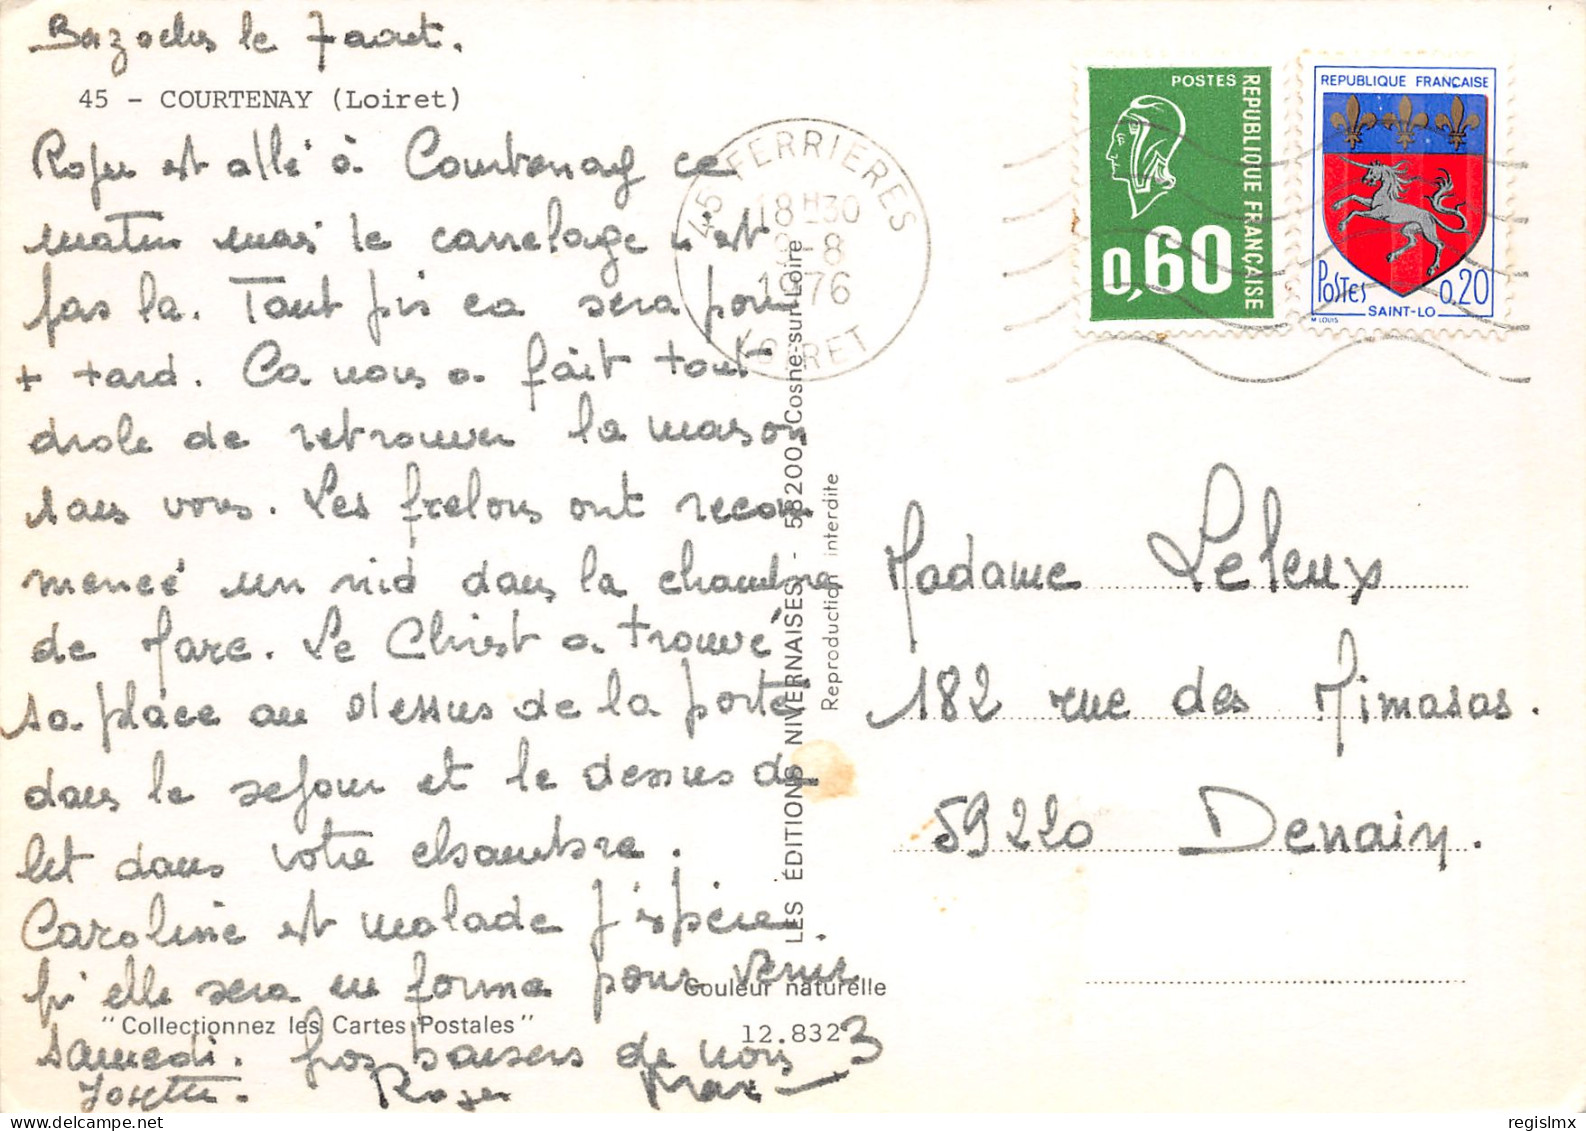 Bazoches le 7 août.
45 - COURTENAY (Loiret)
Roger est allé à Courtenay ce
matin mais le carrelage n'est
pas la. Tant pis ca sera pour
+ tard. Ca nous a fait tout
drole de retrouver la maison
sans vous. Les frelons ont recom
mencé un nid dans la chambre
de Marc. Le Christ a trouvé
sa place au dessus de la porte
dans le sejour et le dessus de
lit dans votre chambre.
Caroline est malade j'espère
qu'elle sera en forme pour venir
Samedi. Gros baisers de nous 3
Josette. Roger Marc
"Collectionnez les Cartes Postales"
Couleur naturelle
12.832
LES ÉDITIONS NIVERNAISES - 58200 Cosne-sur-Loire
Reproduction interdite
45 FERRIERES
18 H30
8
1976
LOIRET
POSTES
REPUBLIQUE FRANÇAISE
0,60
REPUBLIQUE FRANÇAISE
POSTES 0,20
SAINT-LO
M LOUIS
Madame Leleux
182 rue des Mimosas.
59220 Denain.
regislmx